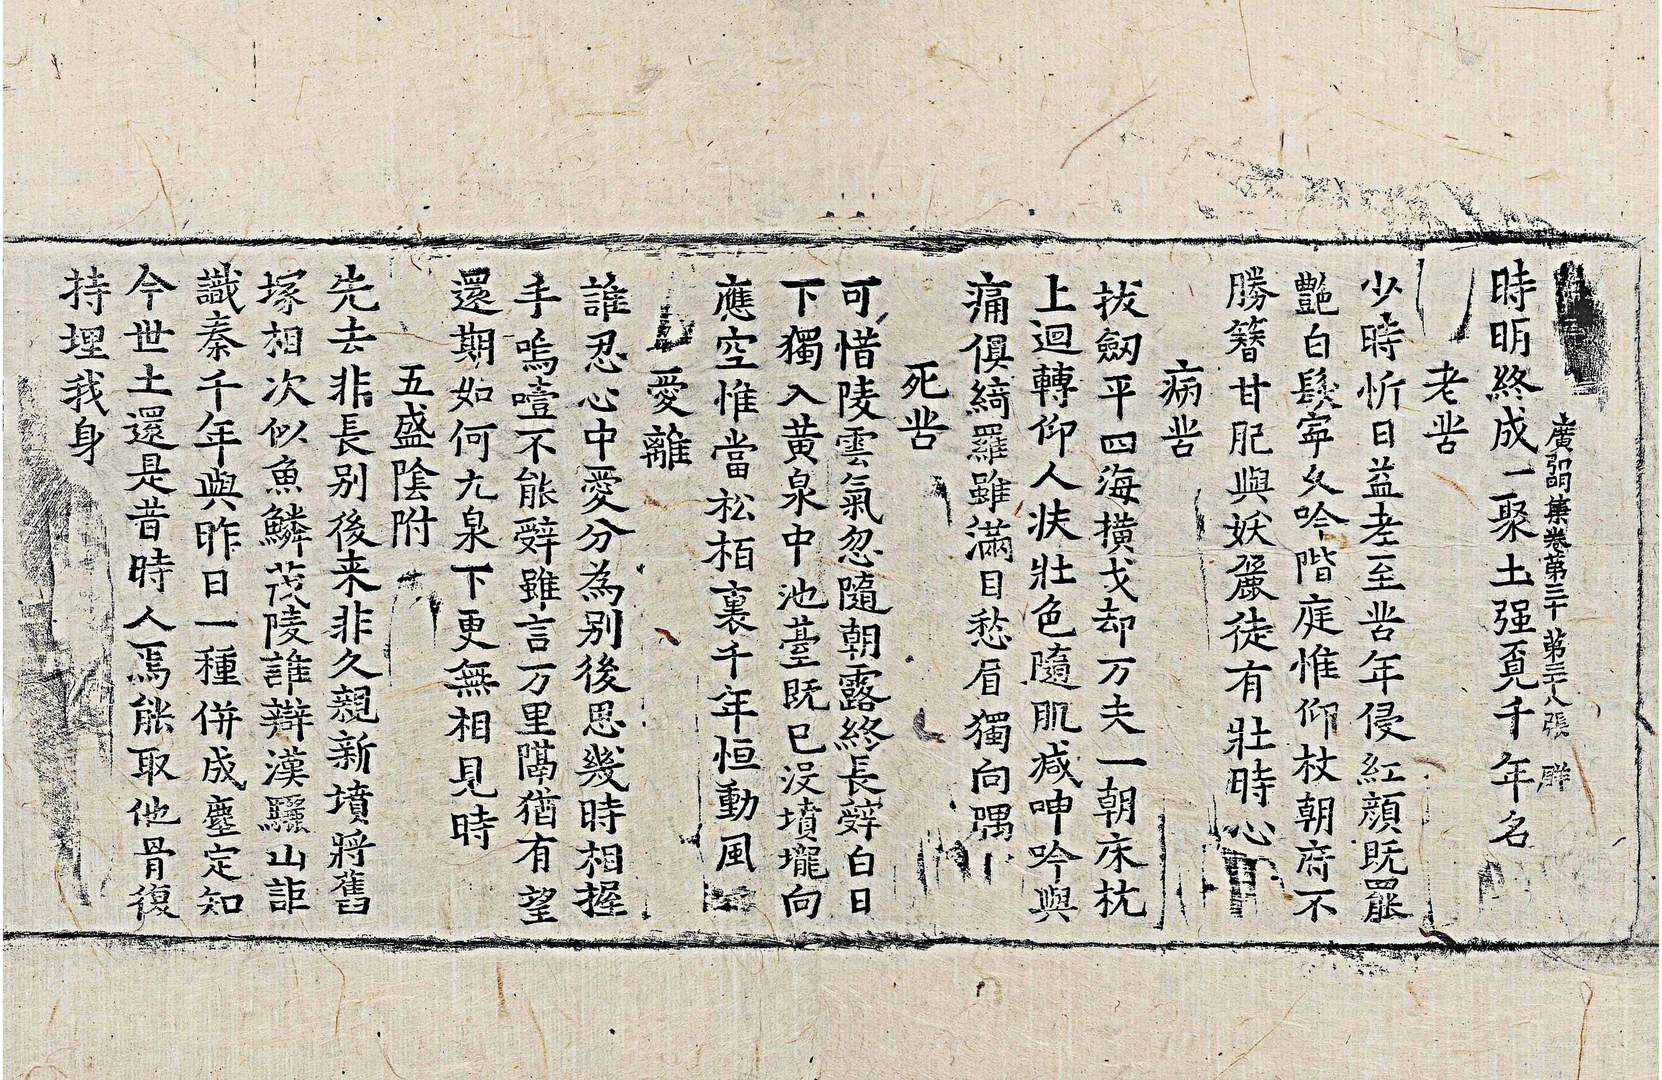 廣弘明集卷第三十 第三十八張 群
時明終成一聚土强覓千年名
老苦
少時忻日益老至苦年侵紅顔既罷
艶白髮寜久吟階庭惟仰杖朝府不
勝簪甘肥與妖麗徒有壯時心
病苦
拔劒平四海撗戈却万夫一朝床枕
上迴轉仰人扶壯色隨肌減呻吟與
痛俱綺羅雖滿目愁眉獨向隅
死苦
可惜陵雲氣忽隨朝露終長辝白日
下獨入黄泉中池臺既已没墳壠向
應空惟當松栢裏千年恒動風
愛離
誰忍心中愛分為别後思幾時相握
手嗚噎不能辝雖言万里隔猶有望
還期如何九泉下更無相見時
五盛陰附
先去非長别後来非久親新墳將舊
塚相次似魚鱗茂陵誰辯漢驪山詎
識秦千年與昨日一種併成塵定知
今世土還是昔時人焉能取他骨復
持埋我身